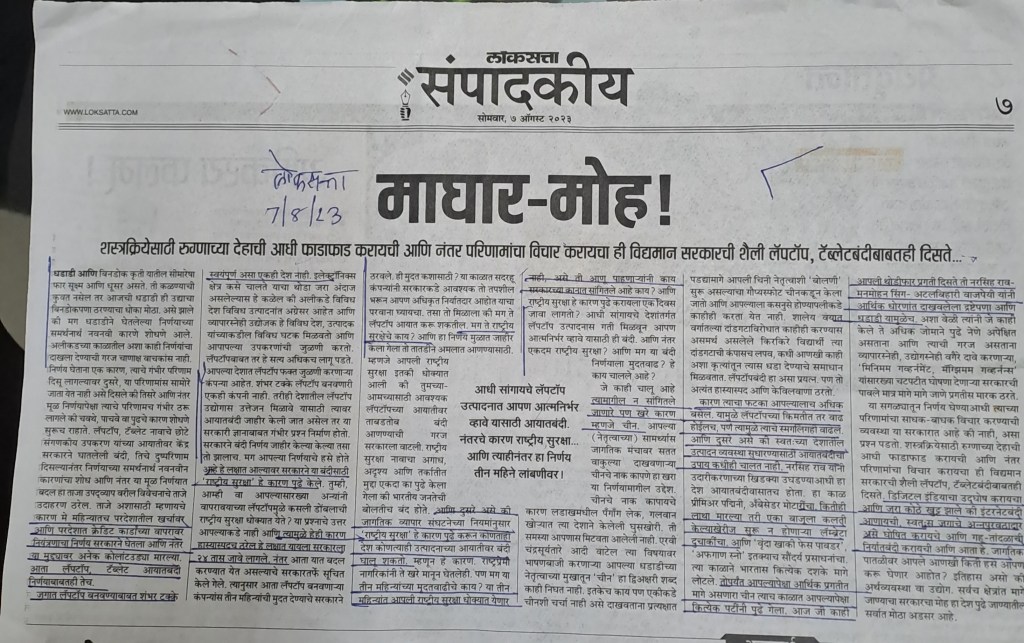 लोकसत्ता
संपादकीय
सोमवार, ७ ऑगस्ट २०२३
WWW.LOKSATTA.COM
७
लोकसत्ता
7/8/23
माघार-मोह!
शस्त्रक्रियेसाठी रुग्णाच्या देहाची आधी फाडाफाड करायची आणि नंतर परिणामांचा विचार करायचा ही विद्यमान सरकारची शैली लॅपटॉप, टॅब्लेटबंदीबाबतही दिसते...
धडाडी आणि बिनडोक कृती यातील सीमारेषा
फार सूक्ष्म आणि धूसर असते. ती कळण्याची
कुवत नसेल तर आजची धडाडी ही उद्याचा
बिनडोकपणा ठरण्याचा धोका मोठा. असे झाले
की मग धडाडीने घेतलेल्या निर्णयाच्या
समर्थनार्थ नवनवी कारणे शोधणे आले.
अलीकडच्या काळातील अशा काही निर्णयांचा
दाखला देण्याची गरज चाणाक्ष वाचकांस नाही.
निर्णय घेताना एक कारण, त्याचे गंभीर परिणाम
दिसू लागल्यावर दुसरे, या परिणामांस सामोरे
जाता येत नाही असे दिसले की तिसरे आणि नंतर
मूळ निर्णयापेक्षा त्याचे परिणामच गंभीर ठरू
लागले की चवथे, पाचवे वा पुढचे कारण शोधणे
सुरूच राहते. लॅपटॉप, टॅब्लेट नावाचे छोटे
संगणकीय उपकरण यांच्या आयातीवर केंद्र
सरकारने घातलेली बंदी, तिचे दुष्परिणाम
दिसल्यानंतर निर्णयाच्या समर्थनार्थ नवनवीन
कारणांचा शोध आणि नंतर या मूळ निर्णयात
बदल हा ताजा उपद्व्याप वरील विवेचनाचे ताजे
उदाहरण ठरेल. ताजे अशासाठी म्हणायचे
कारण मे महिन्यातच परदेशातील खर्चावर
आणि परदेशात क्रेडिट कार्डाच्या वापरावर
नियंत्रणाचा निर्णय सरकारने घेतला आणि नंतर
या मुद्द्यावर अनेक कोलांटउड्या मारल्या.
आता लॅपटॉप, टॅब्लेट आयातबंदी
निर्णयाबाबतही तेच.
जगात लॅपटॉप बनवण्याबाबत शंभर टक्के
स्वयंपूर्ण असा एकही देश नाही. इलेक्ट्रॉनिक्स
क्षेत्र कसे चालते याचा थोडा जरा अंदाज
असलेल्यास हे कळेल की अलीकडे विविध
देश विविध उत्पादनांत अग्रेसर आहेत आणि
व्यापारस्नेही उद्योजक हे विविध देश, उत्पादक
यांच्याकडील विविध घटक मिळवतो आणि
आपापल्या उपकरणांची जुळणी करतो.
लॅपटॉपबाबत तर हे सत्य अधिकच लागू पडते.
आपल्या देशात लॅपटॉप फक्त जुळणी करणाऱ्या
कंपन्या आहेत. शंभर टक्के लॅपटॉप बनवणारी
एकही कंपनी नाही. तरीही देशातील लॅपटॉप
उद्योगास उत्तेजन मिळावे यासाठी त्यावर
आयातबंदी जाहीर केली जात असेल तर या
सरकारी ज्ञानाबाबत गंभीर प्रश्न निर्माण होतो.
सरकारने बंदी निर्णय जाहीर केल्या केल्या तो
झालाच. मग आपल्या निर्णयाचे हसे होते
आहे हे लक्षात आल्यावर सरकारने या बंदीसाठी
'राष्ट्रीय सुरक्षा' हे कारण पुढे केले. तुम्ही,
आम्ही वा आपल्यासारख्या अन्यांनी
वापरावयाच्या लॅपटॉपमुळे कसली डोंबलाची
राष्ट्रीय सुरक्षा धोक्यात येते? या प्रश्नाचे उत्तर
आपल्याकडे नाही आणि त्यामुळे हेही कारण
हास्यास्पदच ठरेल हे लक्षात यावला सरकारला
२४ तास जावे लागले. नंतर आता यात बदल
करण्यात येत असल्याचे सरकारतर्फे सूचित
केले गेले. त्यानुसार आता लॅपटॉप बनवणाऱ्या
कंपन्यांस तीन महिन्यांची मुदत देण्याचे सरकारने
ठरवले. ही मुदत कशासाठी? या काळात सदरहू
कंपन्यांनी सरकारकडे आवश्यक तो तपशील
भरून आपण अधिकृत निर्यातदार आहोत याचा
परवाना घ्यायचा. तसा तो मिळाला की मग ते
लॅपटॉप आयात करू शकतील. मग ते राष्ट्रीय
सुरक्षेचे काय? आणि हा निर्णय मुळात जाहीर
केला गेला तो तातडीने अमलात आणण्यासाठी.
म्हणजे आपली राष्ट्रीय
सुरक्षा इतकी धोक्यात
आली की तुमच्या-
आमच्यासाठी आवश्यक
लॅपटॉपच्या आयातीवर
ताबडतोब बंदी
आणण्याची गरज
सरकारला वाटली. राष्ट्रीय
सुरक्षा नावाचा अगाध,
अदृश्य आणि तर्कातीत
मुद्दा एकदा का पुढे केला
गेला की भारतीय जनतेची
बोलतीच बंद होते. आणि दुसरे असे की
जागतिक व्यापार संघटनेच्या नियमानुसार
'राष्ट्रीय सुरक्षा' हे कारण पुढे करून कोणताही
देश कोणत्याही उत्पादनाच्या आयातीवर बंदी
घालू शकतो. म्हणून हे कारण. राष्ट्रप्रेमी
नागरिकांनी ते खरे मानून घेतलेही. पण मग या
तीन महिन्यांच्या मुदतवाढीचे काय? या तीन
महिन्यांत आपली राष्ट्रीय सुरक्षा धोक्यात येणार
आधी सांगायचे लॅपटॉप
उत्पादनात आपण आत्मनिर्भर
व्हावे यासाठी आयातबंदी.
नंतरचे कारण राष्ट्रीय सुरक्षा...
आणि त्याहीनंतर हा निर्णय
तीन महिने लांबणीवर!
नाही, असे ती आण पाहणाऱ्यांनी काय
सरकारच्या कानात सांगितले आहे काय? आणि
राष्ट्रीय सुरक्षा हे कारण पुढे करायला एक दिवस
जावा लागतो? आधी सांगायचे देशांतर्गत
लॅपटॉप उत्पादनास गती मिळावून आपण
आत्मनिर्भर व्हावे यासाठी ही बंदी. आणि नंतर
एकदम राष्ट्रीय सुरक्षा? आणि मग या बंदी
निर्णयाला मुदतवाढ? हे
काय चालले आहे?
जे काही चालू आहे
त्यामागील न सांगितले
जाणारे पण खरे कारण
म्हणजे चीन. आपल्या
(नेतृत्वाच्या) सामर्थ्यास
जागतिक मंचावर सतत
वाकुल्या दाखवणाऱ्या
चीनचे नाक कापणे हा खरा
या निर्णयामागील उद्देश.
चीनचे नाक कापायचे
कारण लडाखमधील पँगाँग लेक, गलवान
खोऱ्यात त्या देशाने केलेली घुसखोरी. ती
समस्या आपणास मिटवता आलेली नाही. एरवी
चंद्रसूर्यांतरे आदी वाटेल त्या विषयावर
भाषणबाजी करणाऱ्या आपल्या धडाडीच्या
नेतृत्वाच्या मुखातून 'चीन' हा द्विअक्षरी शब्द
काही निघत नाही. इतकेच काय पण एकीकडे
चीनशी चर्चा नाही असे दाखवताना प्रत्यक्षात
पडद्यामागे आपली चिनी नेतृत्वाशी 'बोलणी'
सुरू असल्याचा गौप्यस्फोट चीनकडून केला
जातो आणि आपल्याला कसनुसे होण्यापलीकडे
काहीही करता येत नाही. शालेय वयात
वर्गातल्या दांडगटाविरोधात काहीही करण्यास
असमर्थ असलेले किरकिरे विद्यार्थी त्या
दांडगटाची कंपासच लपव, कधी आणखी काही
अशा कृत्यांतून त्यास धडा देण्याचे समाधान
मिळवतात. लॅपटॉपबंदी हा असा प्रयत्न. पण तो
अत्यंत हास्यास्पद आणि केविलवाणा ठरतो.
कारण त्याचा फटका आपल्यालाच अधिक
बसेल. यामुळे लॅपटॉपच्या किमतीत तर वाढ
होईलच, पण त्यामुळे त्याचे स्मगलिंगही वाढेल
आणि दुसरे असे की स्वतःच्या देशातील
उत्पादन व्यवस्था सुधारण्यासाठी आयातबंदीचा
उपाय कधीही चालत नाही. नरसिंह राव यांनी
उदारीकरणाच्या खिडक्या उघडण्याआधी हा
देश आयातबंदीवासातच होता. हा काळ
प्रीमियर पद्मिनी, अँबेसेडर मोटारींचा, कितीही
लाथा मारल्या तरी एका बाजूला कलती
केल्याखेरीज सुरू न होणाऱ्या लॅम्ब्रेटा
दुचाकीचा. आणि 'वृंदा खाकी फेस पावडर'
'अफगाण स्नो' इत्यादी सौंदर्य प्रसाधनांचा.
त्या काळाने भारतास कित्येक दशके मागे
लोटले. तोपर्यंत आपल्यापेक्षा आर्थिक प्रगतीत
मागे असणारा चीन त्याच काळात आपल्यापेक्षा
कित्येक पटींनी पुढे गेला. आज जी काही
आपली थोडीफार प्रगती दिसते ती नरसिंह राव-
मनमोहन सिंग- अटलबिहारी वाजपेयी यांनी
आर्थिक धोरणांत दाखवलेले द्रष्टेपण आणि
धडाडी यामुळेच. अशा वेळी त्यांनी जे काही
केले ते अधिक जोमाने पुढे नेणे अपेक्षित
असताना आणि त्याची गरज असताना
व्यापारस्नेही, उद्योगस्नेही वगैरे दावे करणाऱ्या,
'मिनिमम गव्हर्नमेंट, मॅग्झिमम गव्हर्नन्स'
यांसारख्या चटपटीत घोषणा देणाऱ्या सरकारची
पावले मात्र मागे मागे जाणे प्रगतीस मारक ठरते.
या सगळ्यातून निर्णय घेण्याआधी त्याच्या
परिणामांचा साधक-बाधक विचार करण्याची
व्यवस्था या सरकारात आहे की नाही, असा
प्रश्न पडतो. शस्त्रक्रियेसाठी रुग्णाच्या देहाची
आधी फाडाफाड करायची आणि नंतर
परिणामांचा विचार करायचा ही विद्यमान
सरकारची शैली लॅपटॉप, टॅब्लेटबंदीबाबतही
दिसते. डिजिटल इंडियाचा उद्घोष करायचा
आणि जरा कोठे खुट्ट झाले की इंटरनेटबंदी
असे घोषित करायचे आणि गहू-तांदळाची
निर्यातबंदी करायची आणि आता हे. जागतिक
पातळीवर आपले आणखी किती हसे आपण
करू घेणार आहोत? इतिहास असो की
अर्थव्यवस्था वा उद्योग. सर्वच क्षेत्रांत मागे
जाण्याचा सरकारचा मोह हा देश पुढे जाण्यातील
सर्वात मोठा अडसर आहे.